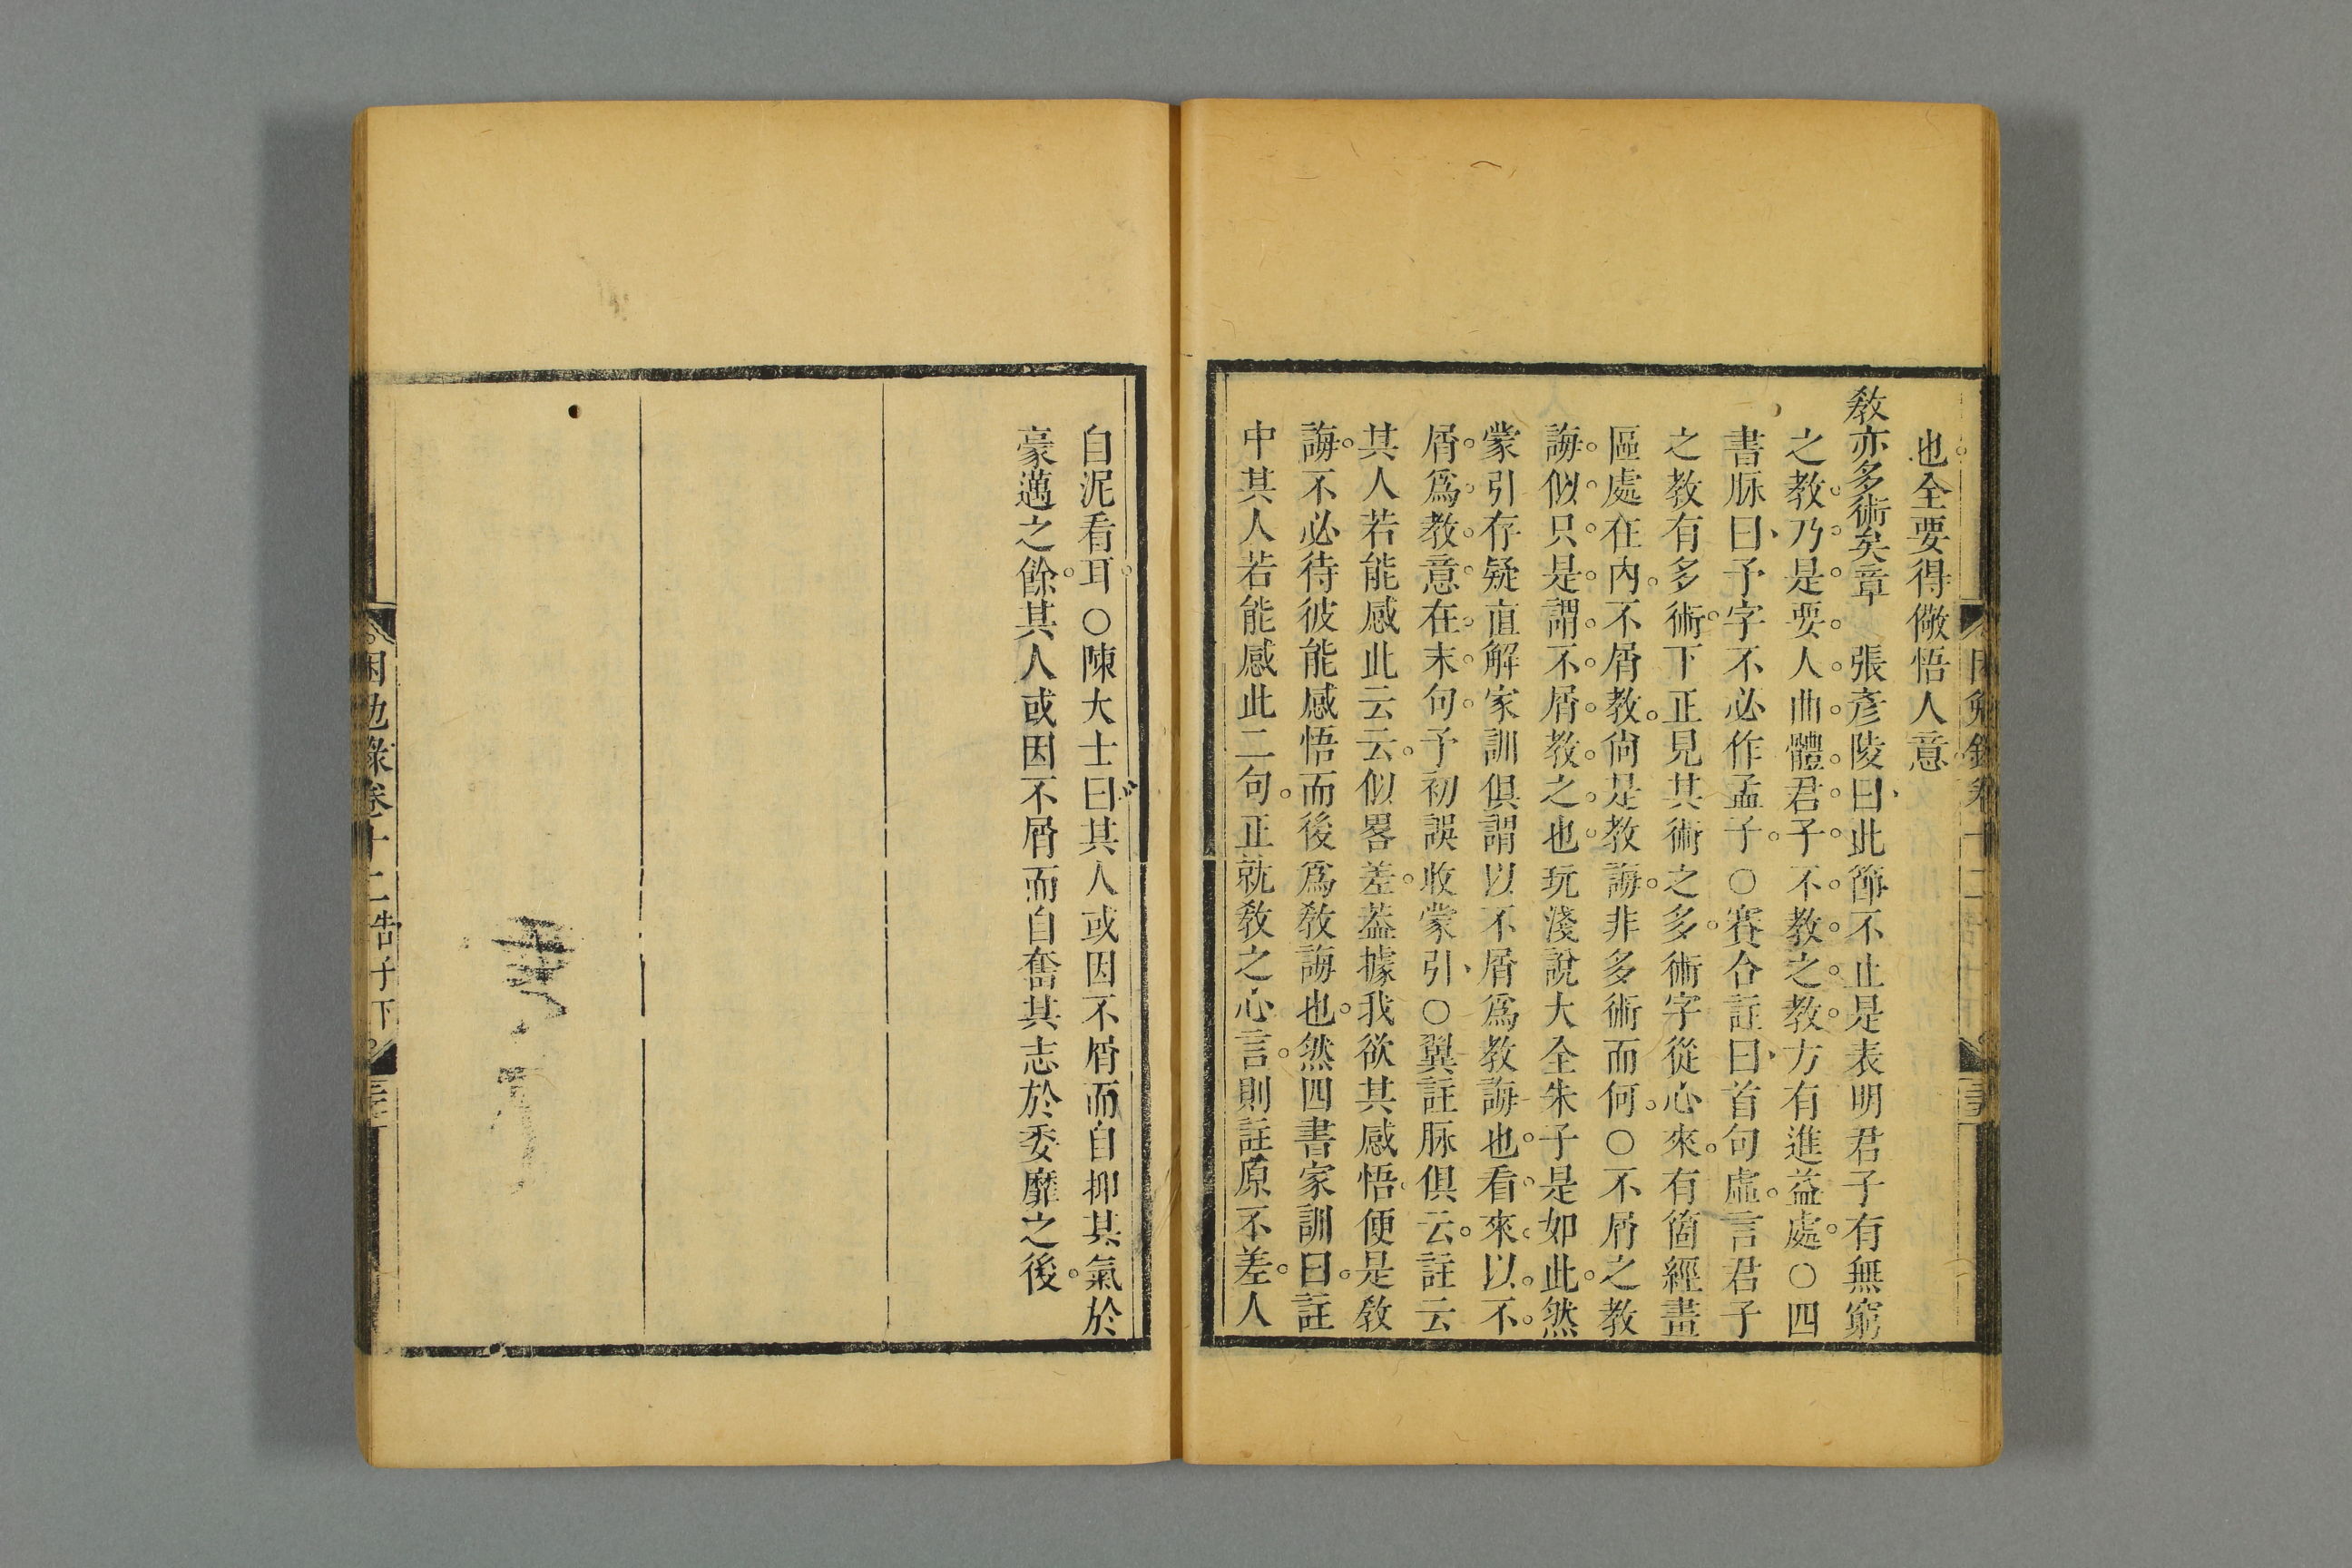 也全要得儆悟人意
教亦多術矣章 張彥陵曰此節不止是表明君子有無窮
之教乃是要人曲體君子不教之教方有進益處○四
書脉曰予字不必作孟子○賽合註曰首句虛言君子
之教有多術下正見其術之多術字從心來有箇經畫
區處在內不屑教尙是教誨非多術而何○不屑之教
誨似只是謂不屑教之也玩淺說大全朱子是如此然
蒙引存疑直解家訓俱謂以不屑爲教誨也看來以不
屑爲教意在末句予初誤收蒙引○翼註脉俱云註云
其人若能感此云云似畧差葢據我欲其感悟便是敎
誨不必待彼能感悟而後爲敎誨也然四書家訓曰註
中其人若能感此二句正就敎之心言則註原不差人
自泥看耳○陳大士曰其人或因不屑而自抑其氣於
豪邁之餘其人或因不屑而自奮其志於委靡之後
困勉錄卷十二告子下